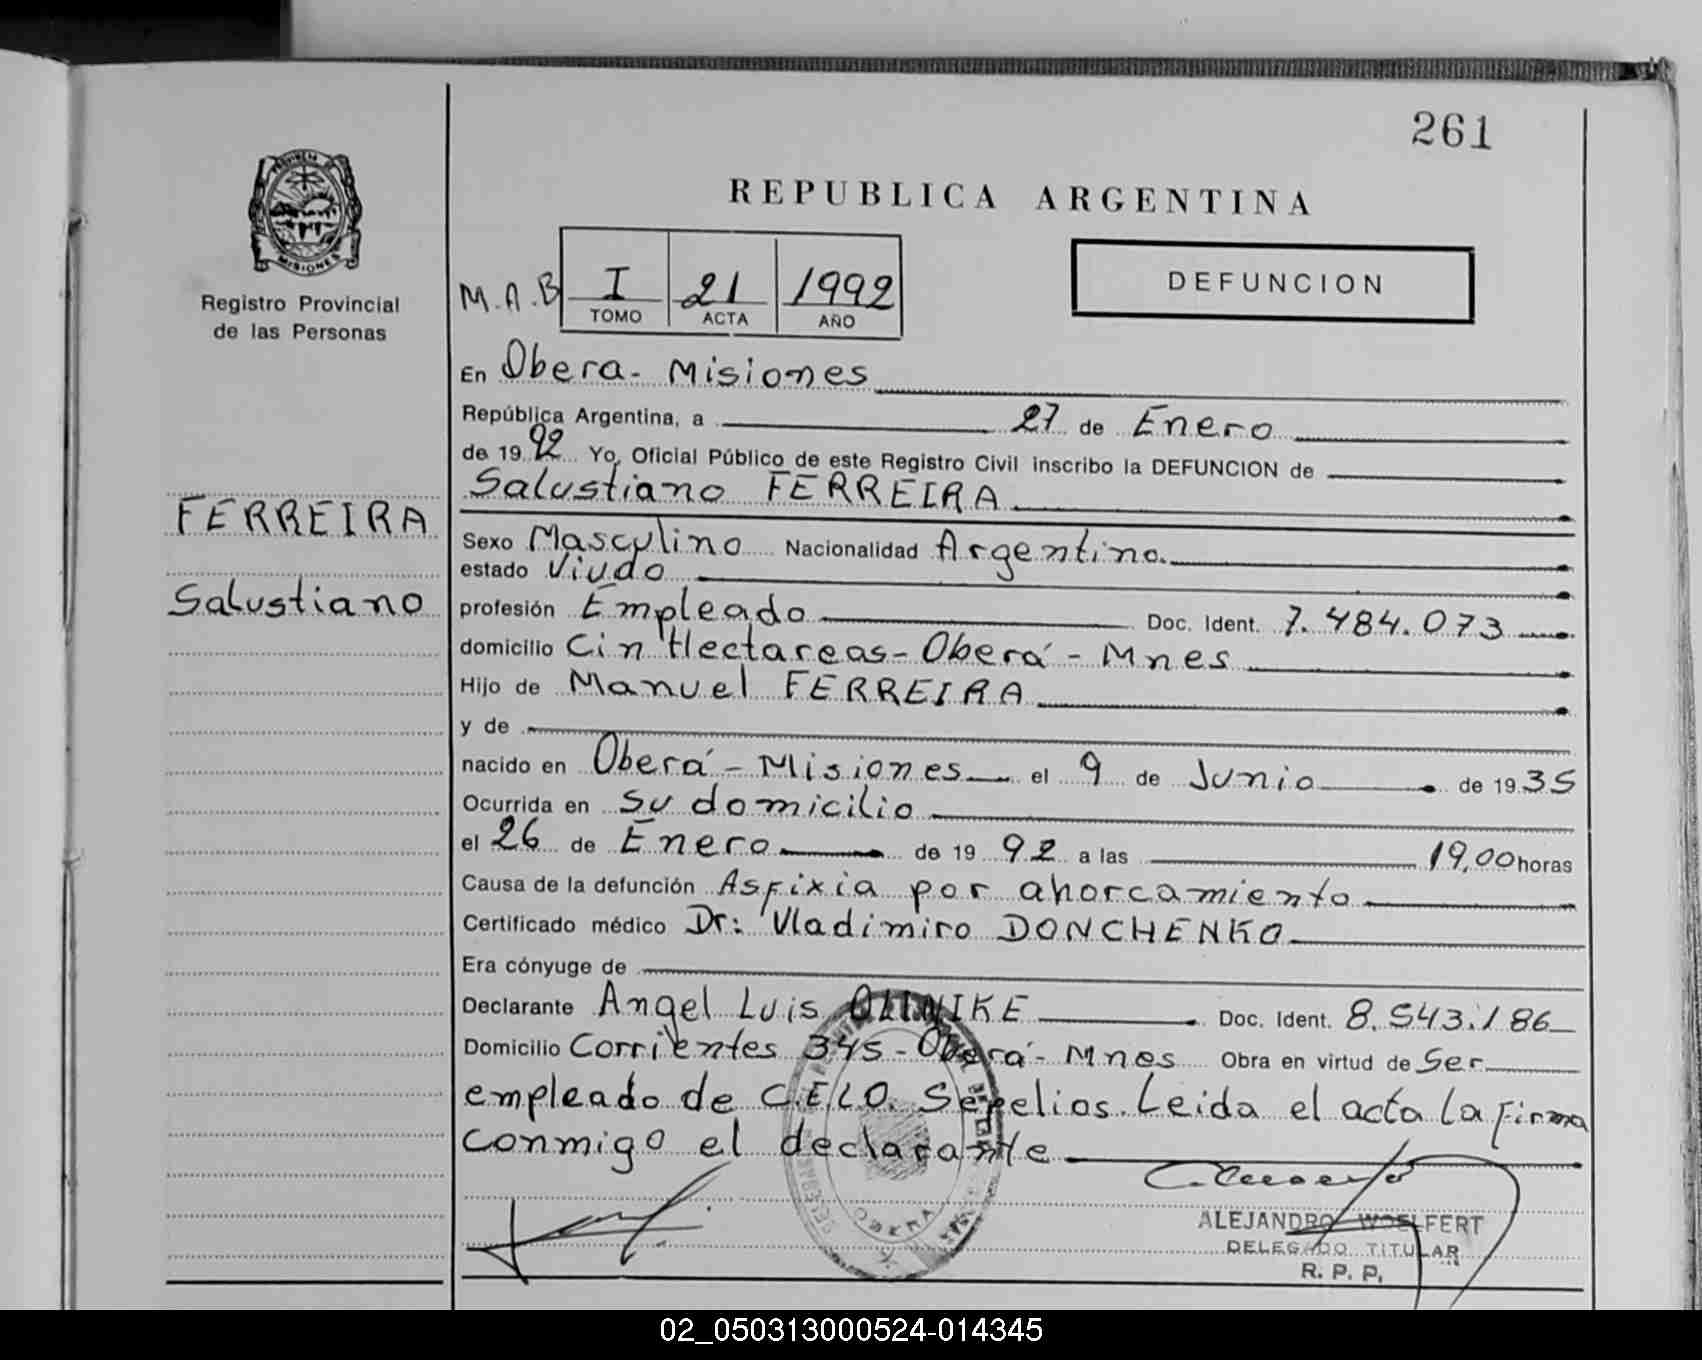 261
REPUBLICA ARGENTINA
PROVINCIA DE
MISIONES
Registro Provincial
de las Personas
M.A.B
I 21 1992
TOMO ACTA AÑO
DEFUNCION
En Obera - Misiones
República Argentina, a 27 de Enero
de 19 92 Yo, Oficial Público de este Registro Civil inscribo la DEFUNCION de
Salustiano FERREIRA
FERREIRA
Salustiano
Sexo Masculino Nacionalidad Argentino.
estado Viudo
profesión Empleado Doc. Ident. 7.484.073
domicilio Cin Hectareas - Oberá - Mnes
Hijo de Manuel FERREIRA
y de
nacido en Oberá - Misiones el 9 de Junio de 19 35
Ocurrida en su domicilio
el 26 de Enero de 19 92 a las 19,00 horas
Causa de la defunción Asfixia por ahorcamiento
Certificado médico Dr: Vladimiro DONCHENKO
Era cónyuge de
Declarante Angel Luis Doc. Ident. 8.543.186
Domicilio Corrientes 345 - Oberá - Mnes Obra en virtud de Ser
empleado de C.E.L.O. Sepelios. Leida el acta la firma
conmigo el declarante
OBERA
ALEJANDRO WOELFERT
DELEGADO TITULAR
R. P. P.
02_050313000524-014345